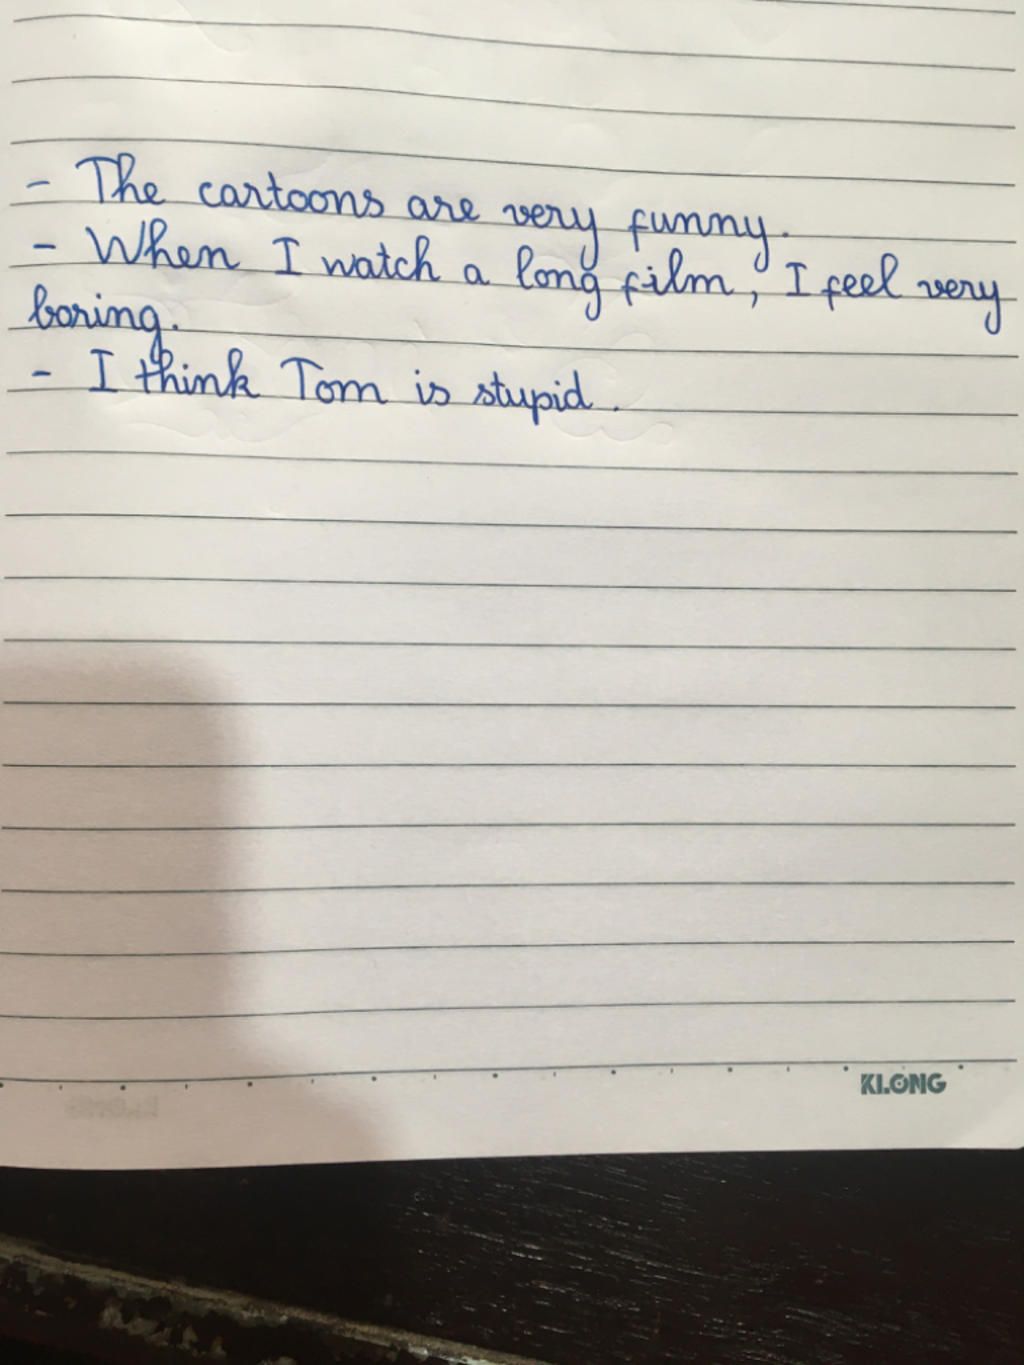 - The cartoons are very funny.
- When I watch a long film, I feel very
boring.
- I think Tom is stupid.
KLONG